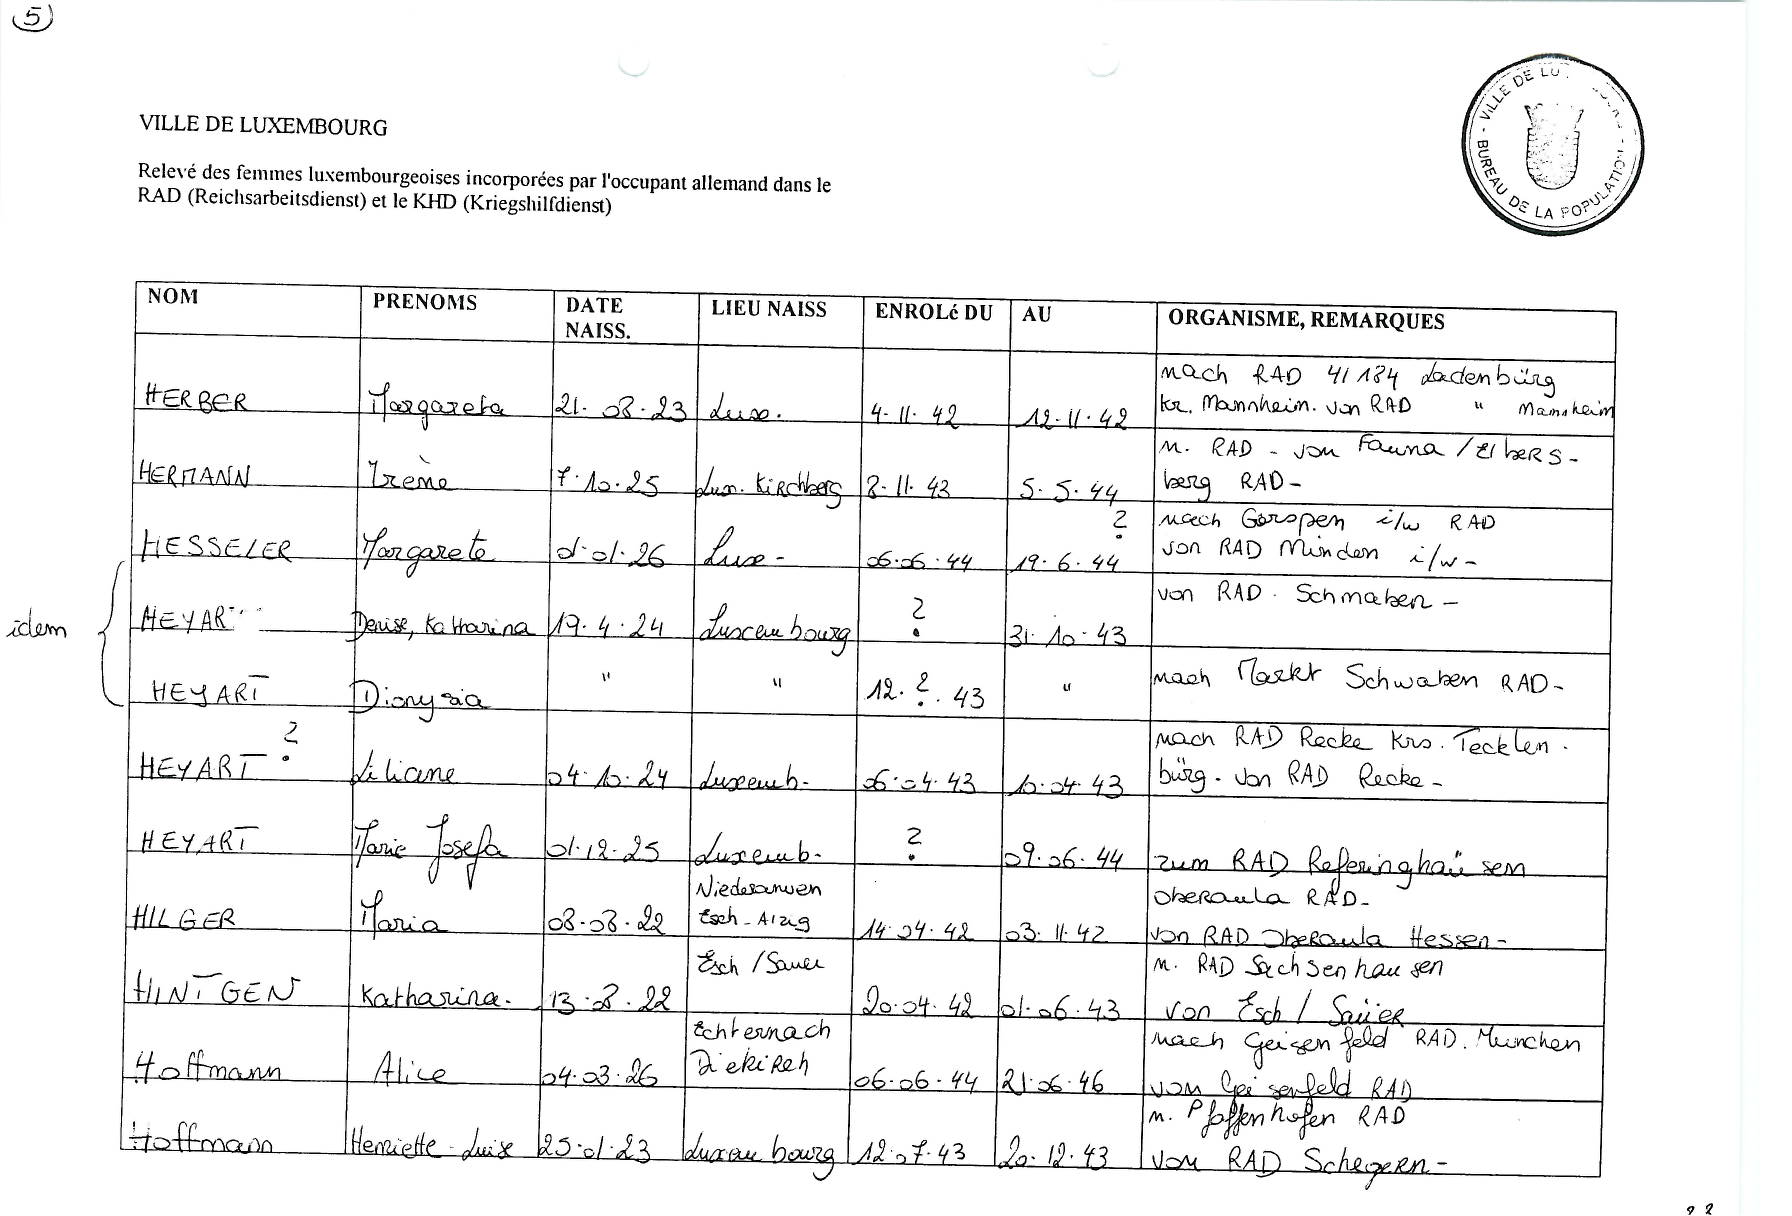 5
VILLE DE LUXEMBOURG
BUREAU DE LA POPULATION
VILLE DE LUXEMBOURG
Relevé des femmes luxembourgeoises incorporées par l'occupant allemand dans le
RAD (Reichsarbeitsdienst) et le KHD (Kriegshilfdienst)
NOM PRENOMS DATE NAISS. LIEU NAISS ENROLé DU AU ORGANISME, REMARQUES
nach RAD 4/184 Ladenbürg
HERBER Margareta 21.08.23 Lux. 4.11.42 12.11.42 Kr. Mannheim. von RAD " Mannheim
m. RAD - von Fauna / Elbers-
HERMANN Irène 7.10.25 Lux. Kirchberg 8.11.43 5.5.44 berg RAD -
? nach Gorspen i/w RAD
HESSELER Margarete 01.01.26 Lux - 06.06.44 19.6.44 von RAD Minden i/w -
von RAD. Schwaben -
idem HEYART Denise, Katharina 19.4.24 Luxembourg ? 31.10.43
HEYART Dionysia " " 12.?.43 " nach Markt Schwaben RAD -
? nach RAD Recke Krs. Tecklen.
HEYART Liliane 04.10.24 Luxemb. 06.04.43 10.04.43 bürg. von RAD Recke -
HEYART Marie Josefa 01.12.25 Luxemb. ? 09.06.44 zum RAD Referinghaüsen
Niederanven Oberaula RAD -
HILGER Maria 08.08.22 Esch-Alzig 14.04.42 03.11.42 von RAD Oberaula Hessen -
Esch / Sauer m. RAD Sachsenhausen
HINTGEN Katharina. 13.08.22 20.04.42 01.06.43 von Esch / Saüer
Echternach nach Geisenfeld RAD. Munchen
Hoffmann Alice 04.03.26 Diekirch 06.06.44 21.06.46 von Geisenfeld RAD
m. Pfaffenhofen RAD
Hoffmann Henriette-Luise 25.01.23 Luxembourg 12.07.43 20.12.43 von RAD Schegern -